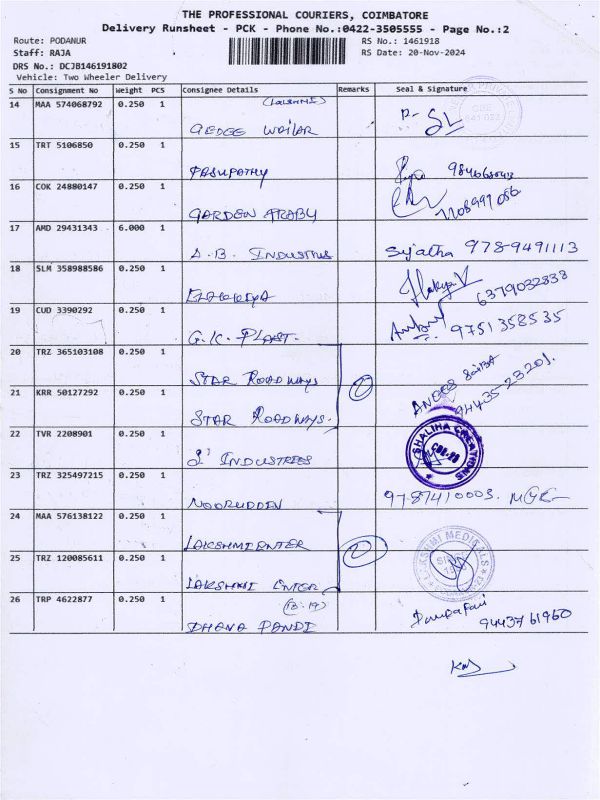 THE PROFESSIONAL COURIERS, COIMBATORE
Delivery Runsheet - PCK - Phone No.:0422-3505555 - Page No.:2
Route: PODANUR RS No.: 1461918
Staff: RAJA RS Date: 20-Nov-2024
DRS No.: DCJB146191802
Vehicle: Two Wheeler Delivery
S No Consignment No Weight PCS Consignee Details Remarks Seal & Signature
14 MAA 574068792 0.250 1 (LAKSHMI)
15 TRT 5106850 0.250 1
PASUPATHY
16 COK 24880147 0.250 1
GARDEN ARABY
17 AMD 29431343 6.000 1
A.B. INDUSTRIES Sujatha 978-9491113
18 SLM 358988586 0.250 1
6379032838
19 CUD 3390292 0.250 1
G.K. PLAST. 9751358535
20 TRZ 365103108 0.250 1
STAR ROADWAYS 2
21 KRR 50127292 0.250 1
STAR ROADWAYS. 94435-23201.
22 TVR 2208901 0.250 1 SHALIHA CREATIONS
INDUSTRIES
23 TRZ 325497215 0.250 1
NOORUDDEN 97-87410003.
24 MAA 576138122 0.250 1
LAKSHMI ENTER 2
25 TRZ 120085611 0.250 1 LAKSHMI MEDICALS
LAKSHMI ENTER
26 TRP 4622877 0.250 1
DHANA PANDI 9443761960